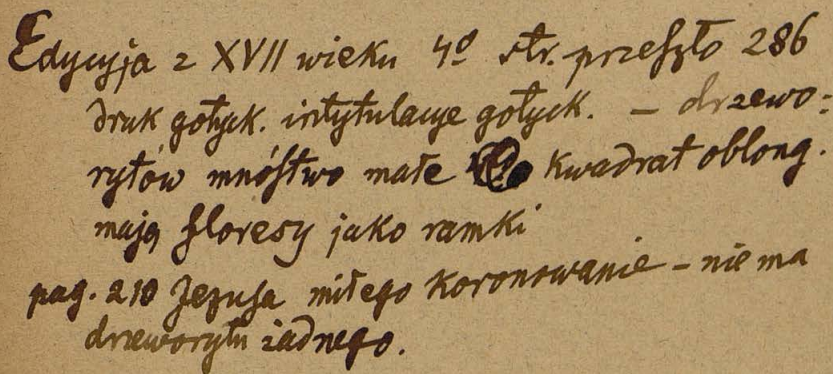 Edycyja z XVII wieku 4º str. przeszło 286
druk gotyck. intytulacye gotyck. – drzewo=
rytów mnóstwo małe kwadrat oblong.
mają floresy jako ramki
pag. 210 Jezusa miłego koronowanie – niema
drzeworytu żadnego.